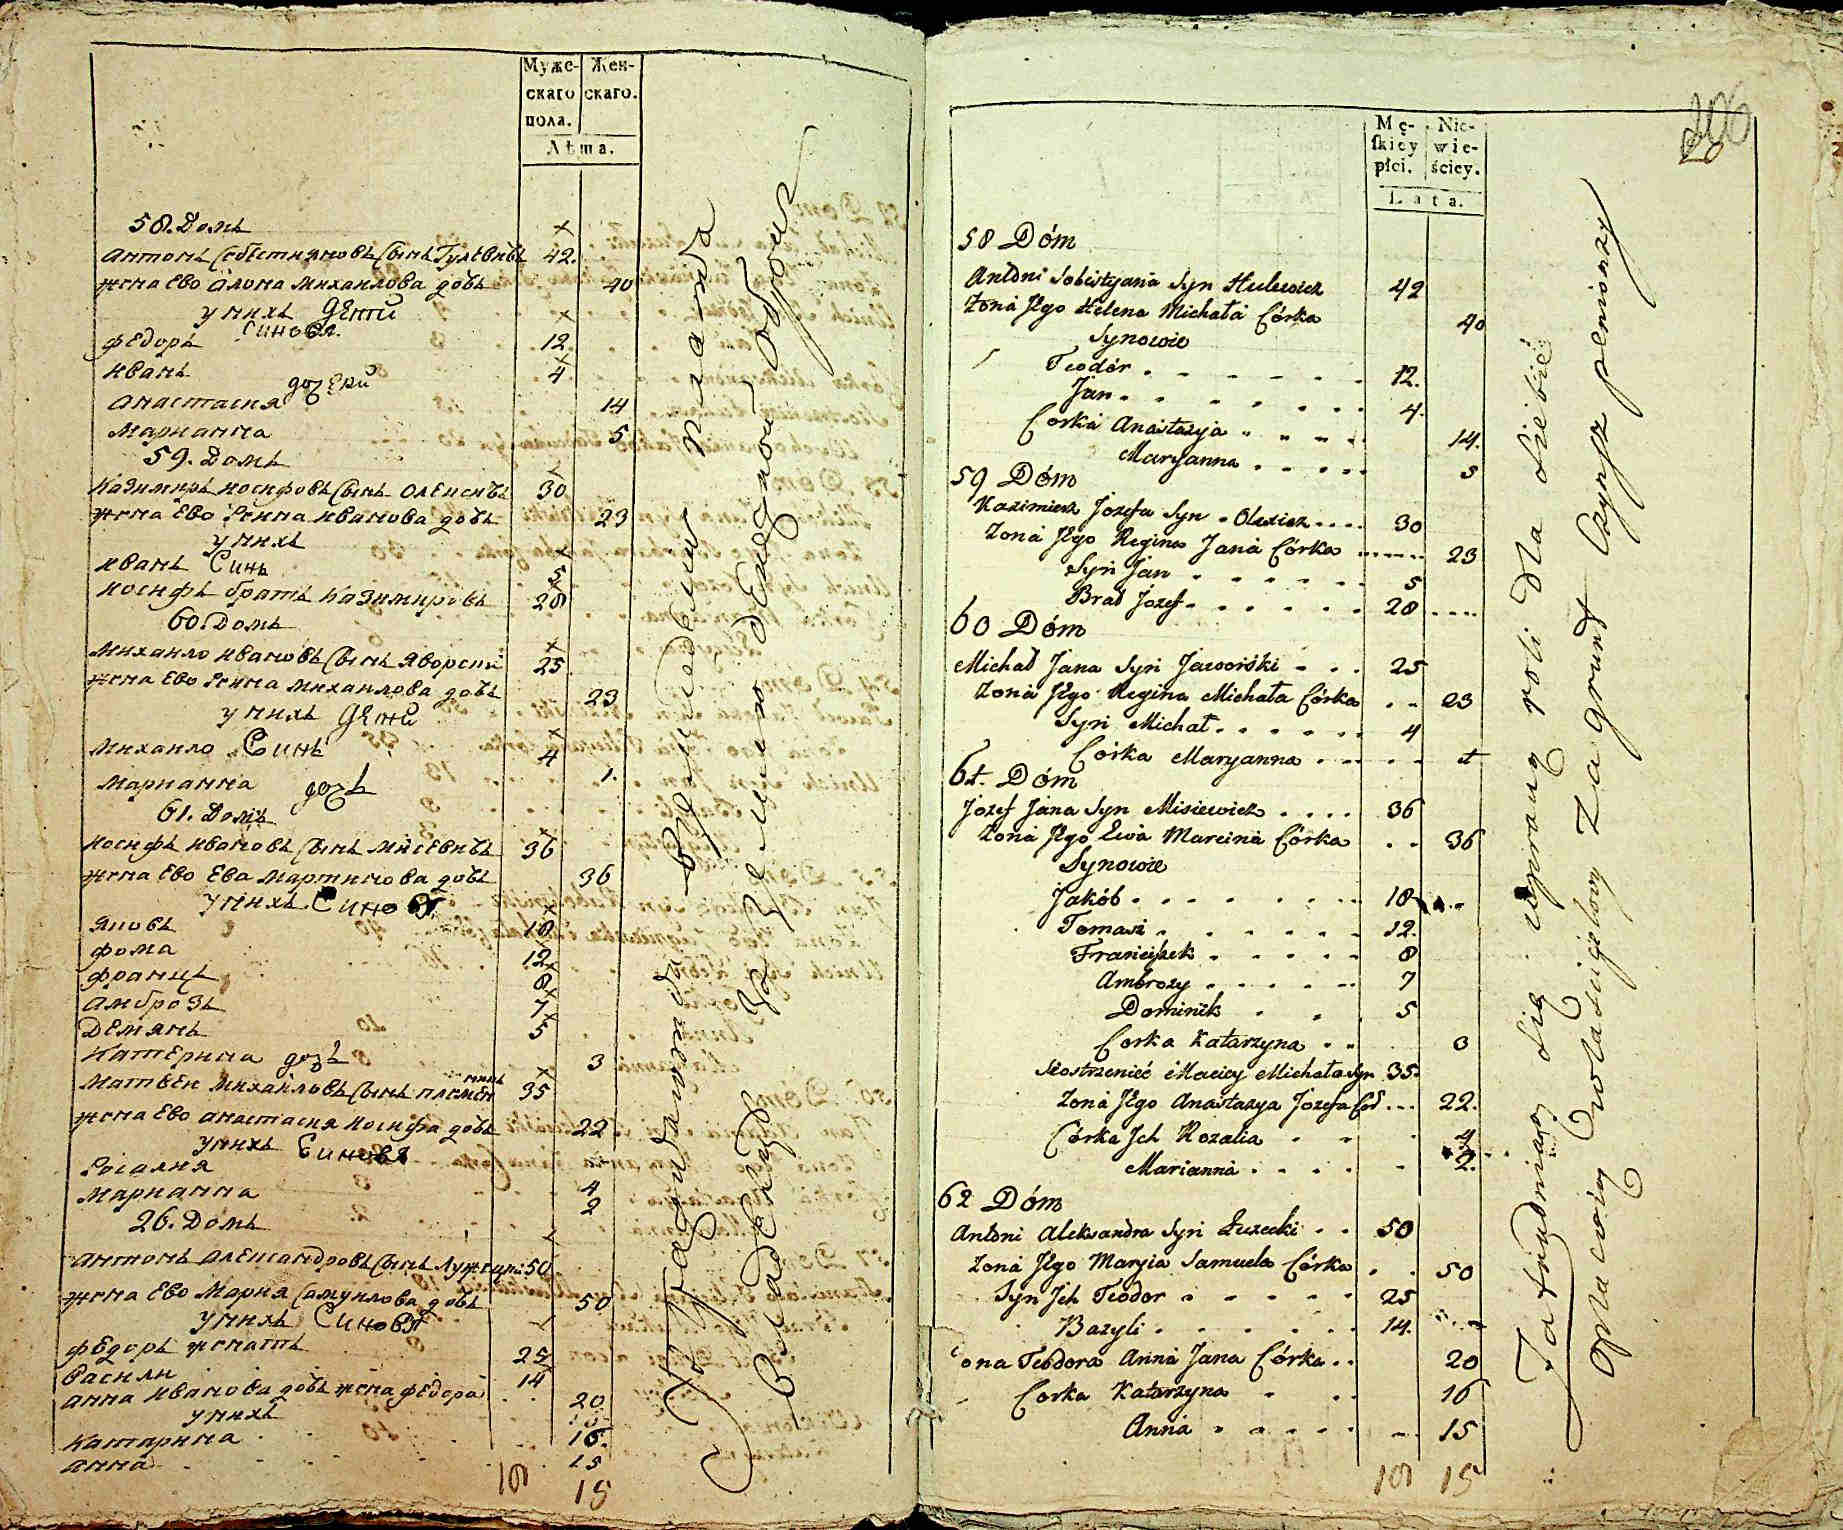 Муже-
скаго
пола.
Жен-
скаго.
Лѣта.
58. Домъ
Антонъ Себестияновъ Сынъ Гулевичъ 42.
жена Ево Алена Михаилова дочь 40
у нихъ Дети
Синовя
Федоръ 12.
Иванъ 4
дочери
Анастасия 14
Марианна 5
59. Домъ
Казимиръ Иосифовъ Сынъ Олексичъ 30
жена Ево Регина Иванова дочь 23
у нихъ
Иванъ Синъ 5
Иосифъ братъ Казимировъ 28
60. Домъ
Михаило Ивановъ Сынъ Яворски 25
жена Ево Регина Михаилова дочь 23
у нихъ Дети
Михаило Синъ 4
Марианна дочь 1.
61. Домъ
Иосифъ Ивановъ Сынъ Мисевичъ 36
жена Ево Ева Мартинова дочь 36
у нихъ Синовя
Яковъ 18
Фома 12
Францъ 8
Амброзъ 7
Демянъ 5
Катерина дочь 3
Матвеи Михаиловъ Сынъ племен
никъ 35
жена Ево Анастасия Иосифа дочь 22
у нихъ Синовя
Росалия 4
Марианна 2
26. Домъ
Антонъ Александровъ Сынъ Лужецки 50
жена Ево Мария Самуилова дочь 50
у нихъ Синовя
Федоръ женатъ 25
Василий 14
Анна Иванова дочь жена Федора 20
у нихъ
Катарина 16.
Анна 15
18 15
206
Mę-
skiey
płci.
Nie-
wie-
ściey.
Lata.
58 Dóm
Antoni Sobestyana Syn Hulewicz 42
Żona Jego Helena Michała Córka 40
Synowie
Teodór 12.
Jan 4.
Corka Anastazya 14.
Maryanna 5
59 Dóm
Kazimierz Jozefa Syn Olexicz 30
Żona Jego Regina Jana Córka 23
Syn Jan 5
Brat Jozef 28
60 Dóm
Michał Jana Syn Jaworski 25
Żona Jego Regina Michała Córka 23
Syn Michał 4
Corka Maryanna 1
61. Dóm
Jozef Jana Syn Misiewicz 36
Żona Jego Ewa Marcina Córka 36
Synowie
Jakób 18
Tomasz 12.
Franciszek 8
Ambrozy 7
Dominik 5
Corka Katarzyna 3
Siostrzeniec Maciey Michała Syn 35.
Żona Jego Anastazya Jozefa Cór 22.
Córka Ich Rozalia 4
Marianna 2.
62 Dóm
Antoni Aleksandra Syn Łuzecki 50
Żona Jego Maryia Samuela Córka 50
Syn Ich Teodor 25
Bazyli 14.
ona Teodora Anna Jana Córka 20
Corka Katarzyna 16
Anna 15
18 15
Zatrudniaią się uprawą roli dla siebie
opłacaią właścicielowy za grunt Czynsz pieniężny